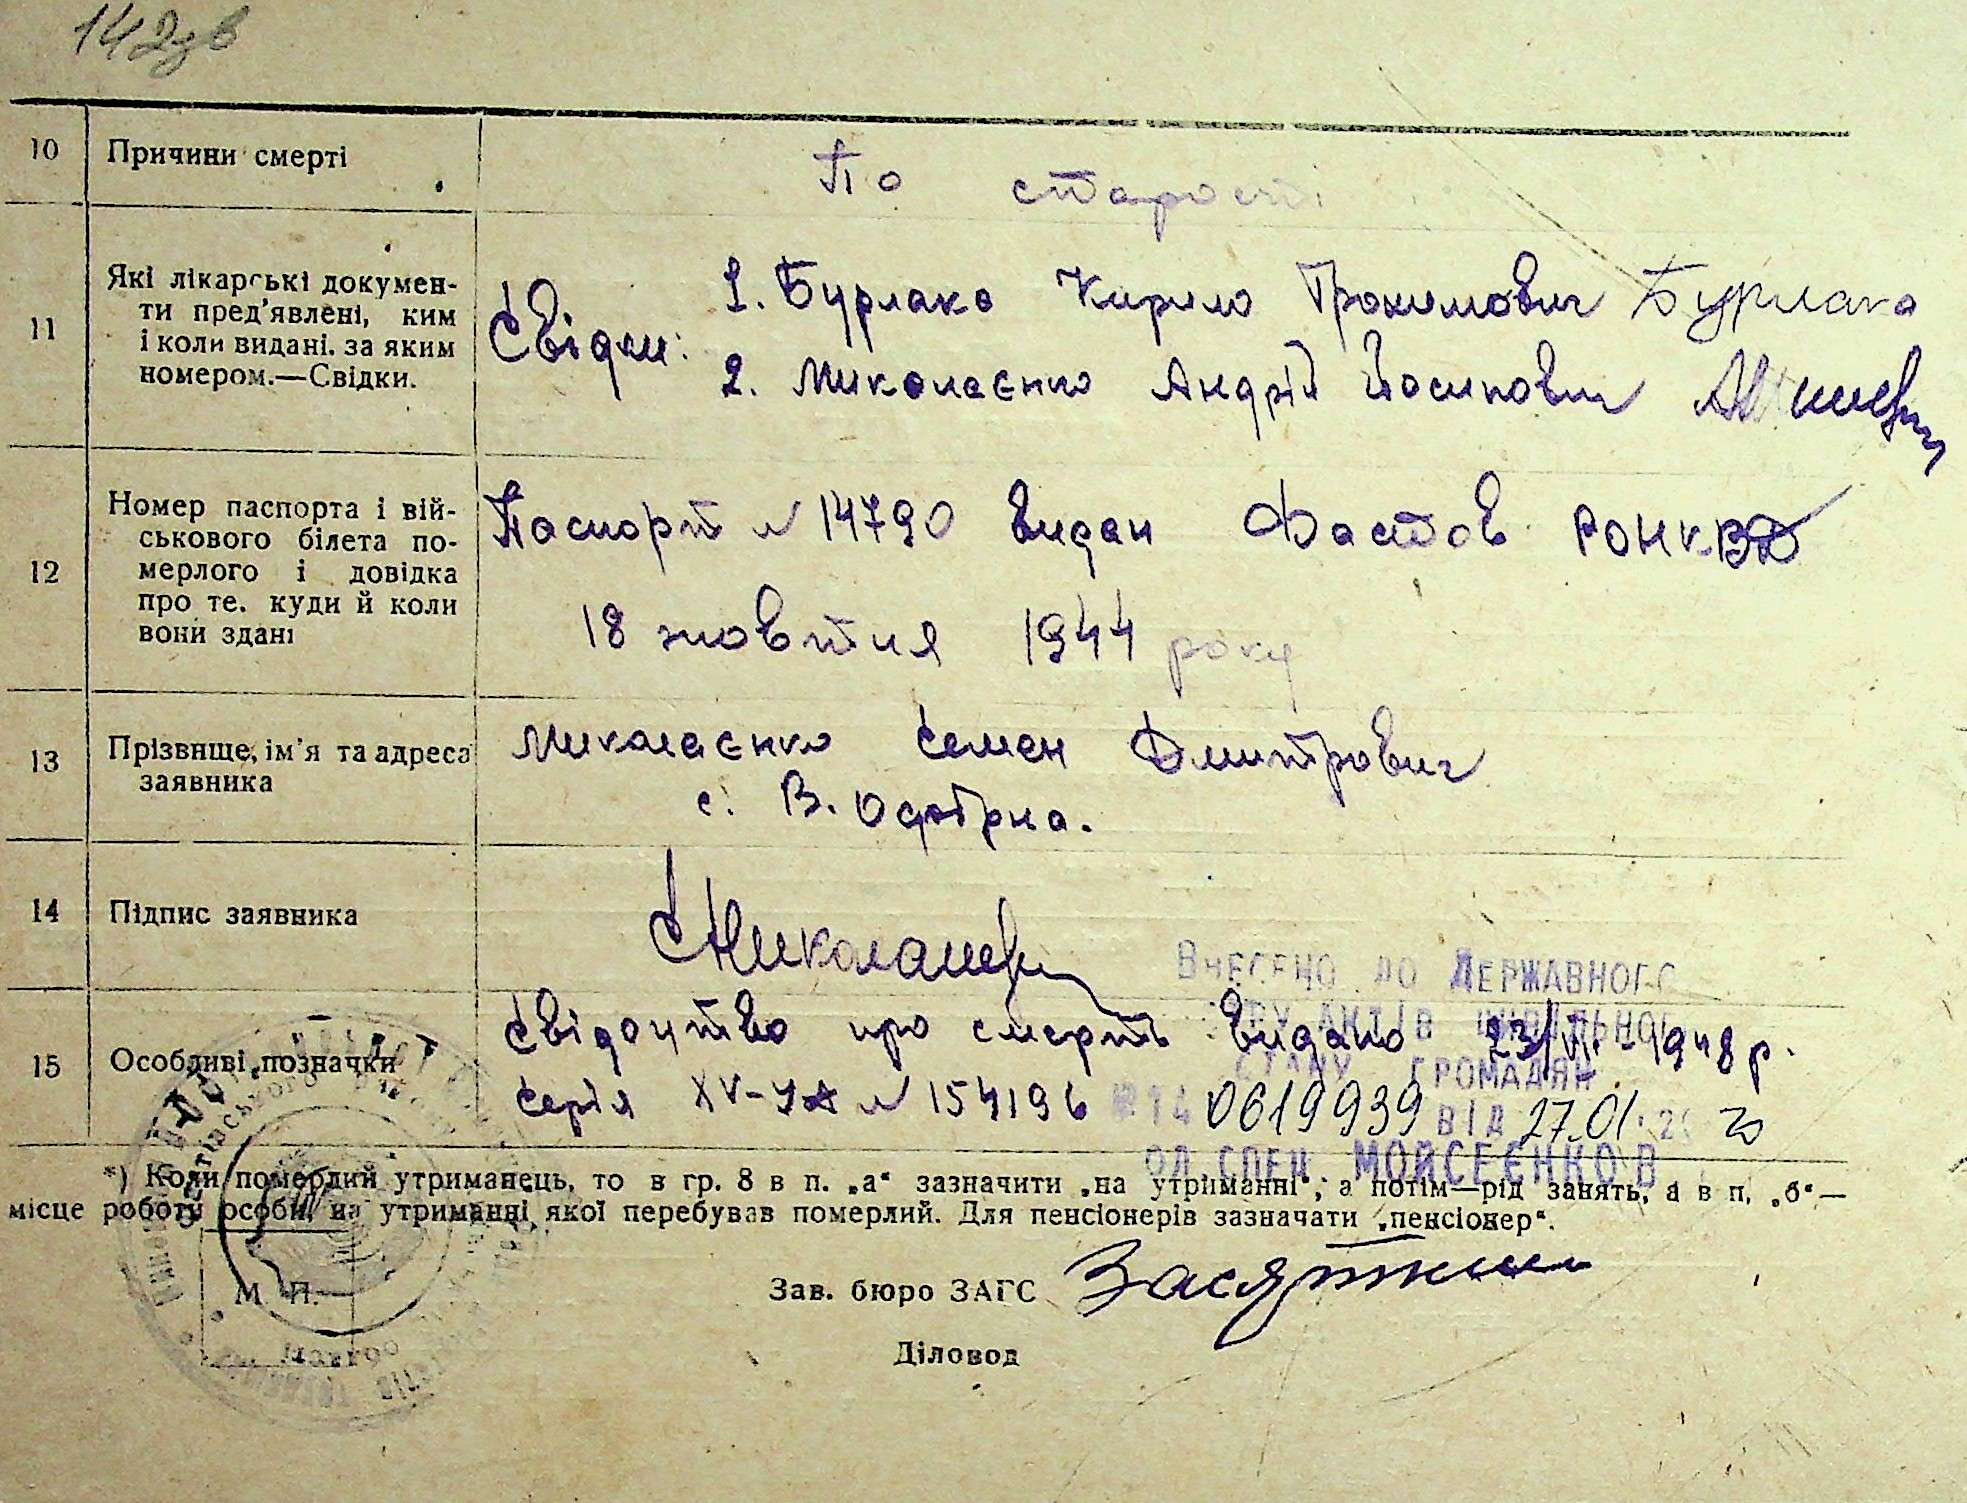 142зв
10 Причини смерті По старості
11 Які лікарські докумен-
ти пред'явлені, ким
і коли видані. за яким
номером.—Свідки.
Свідки: 1. Бурлака Кирило Трохимович Бурлака
2. Миколаєнко Андрій Йосипович
12 Номер паспорта і вій-
ськового білета по-
мерлого і довідка
про те. куди й коли
вони здані
Паспорт № 14790 видан Фастов РОНКВД
18 жовтня 1944 року
13 Прізвище, ім'я та адреса
заявника
Миколаєнко Семен Дмитрович
с. В. Офірна.
14 Підпис заявника
15 Особливі позначки
Свідоцтво про смерть видано 23/VI-1948 р.
серія XV-УА № 154196
ВНЕСЕНО ДО ДЕРЖАВНОГО
АКТІВ ЦИВІЛЬНОГО
СТАНУ ГРОМАДЯН
0619939 ВІД 27.01. 20
СПЕЦ. МОЙСЕЄНКО В
*) Коли померлий утриманець, то в гр. 8 в п. „а“ зазначити „на утриманні“, а потім—рід занять, а в п. „б“—
місце роботи особи, на утриманні якої перебував померлий. Для пенсіонерів зазначати „пенсіонер“.
М. П.
Зав. бюро ЗАГС
Діловод